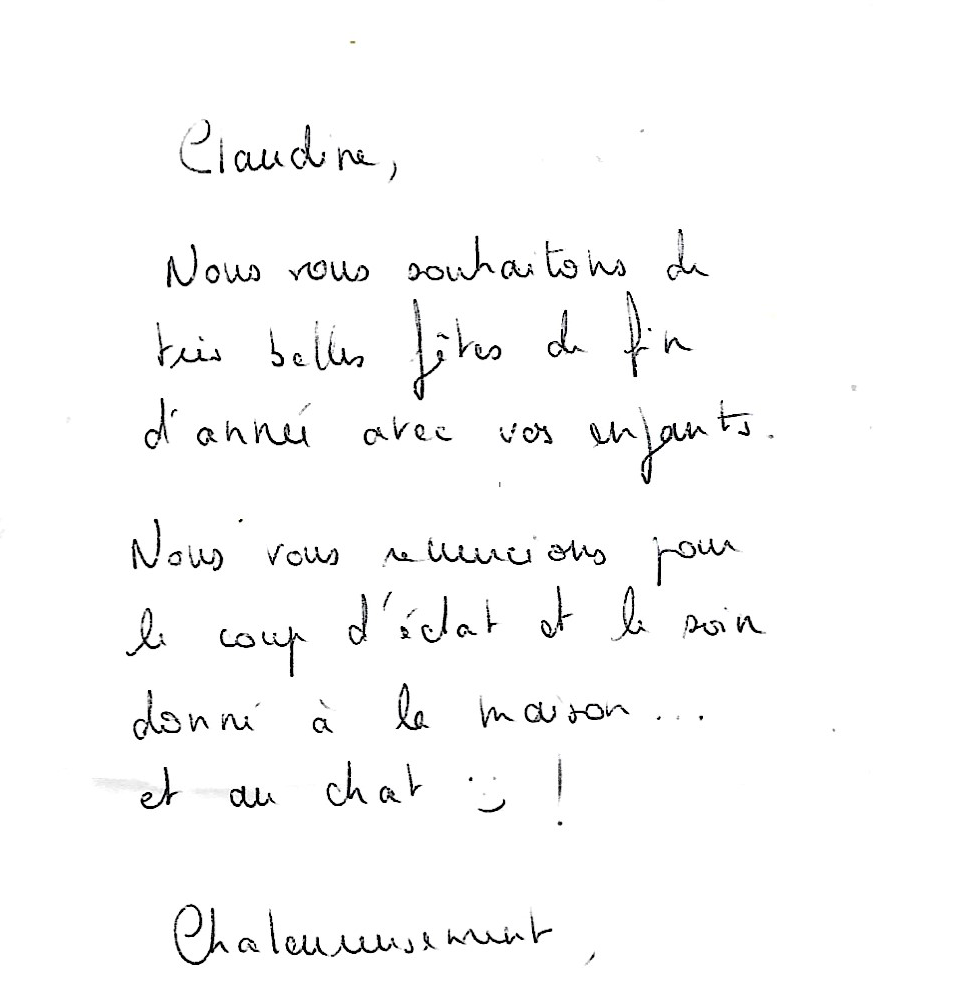 Claudine,
Nous vous souhaitons de
très belles fêtes de fin
d'année avec vos enfants.
Nous vous remercions pour
le coup d'éclat et le soin
donné à la maison...
et au chat :) !
Chaleureusement,